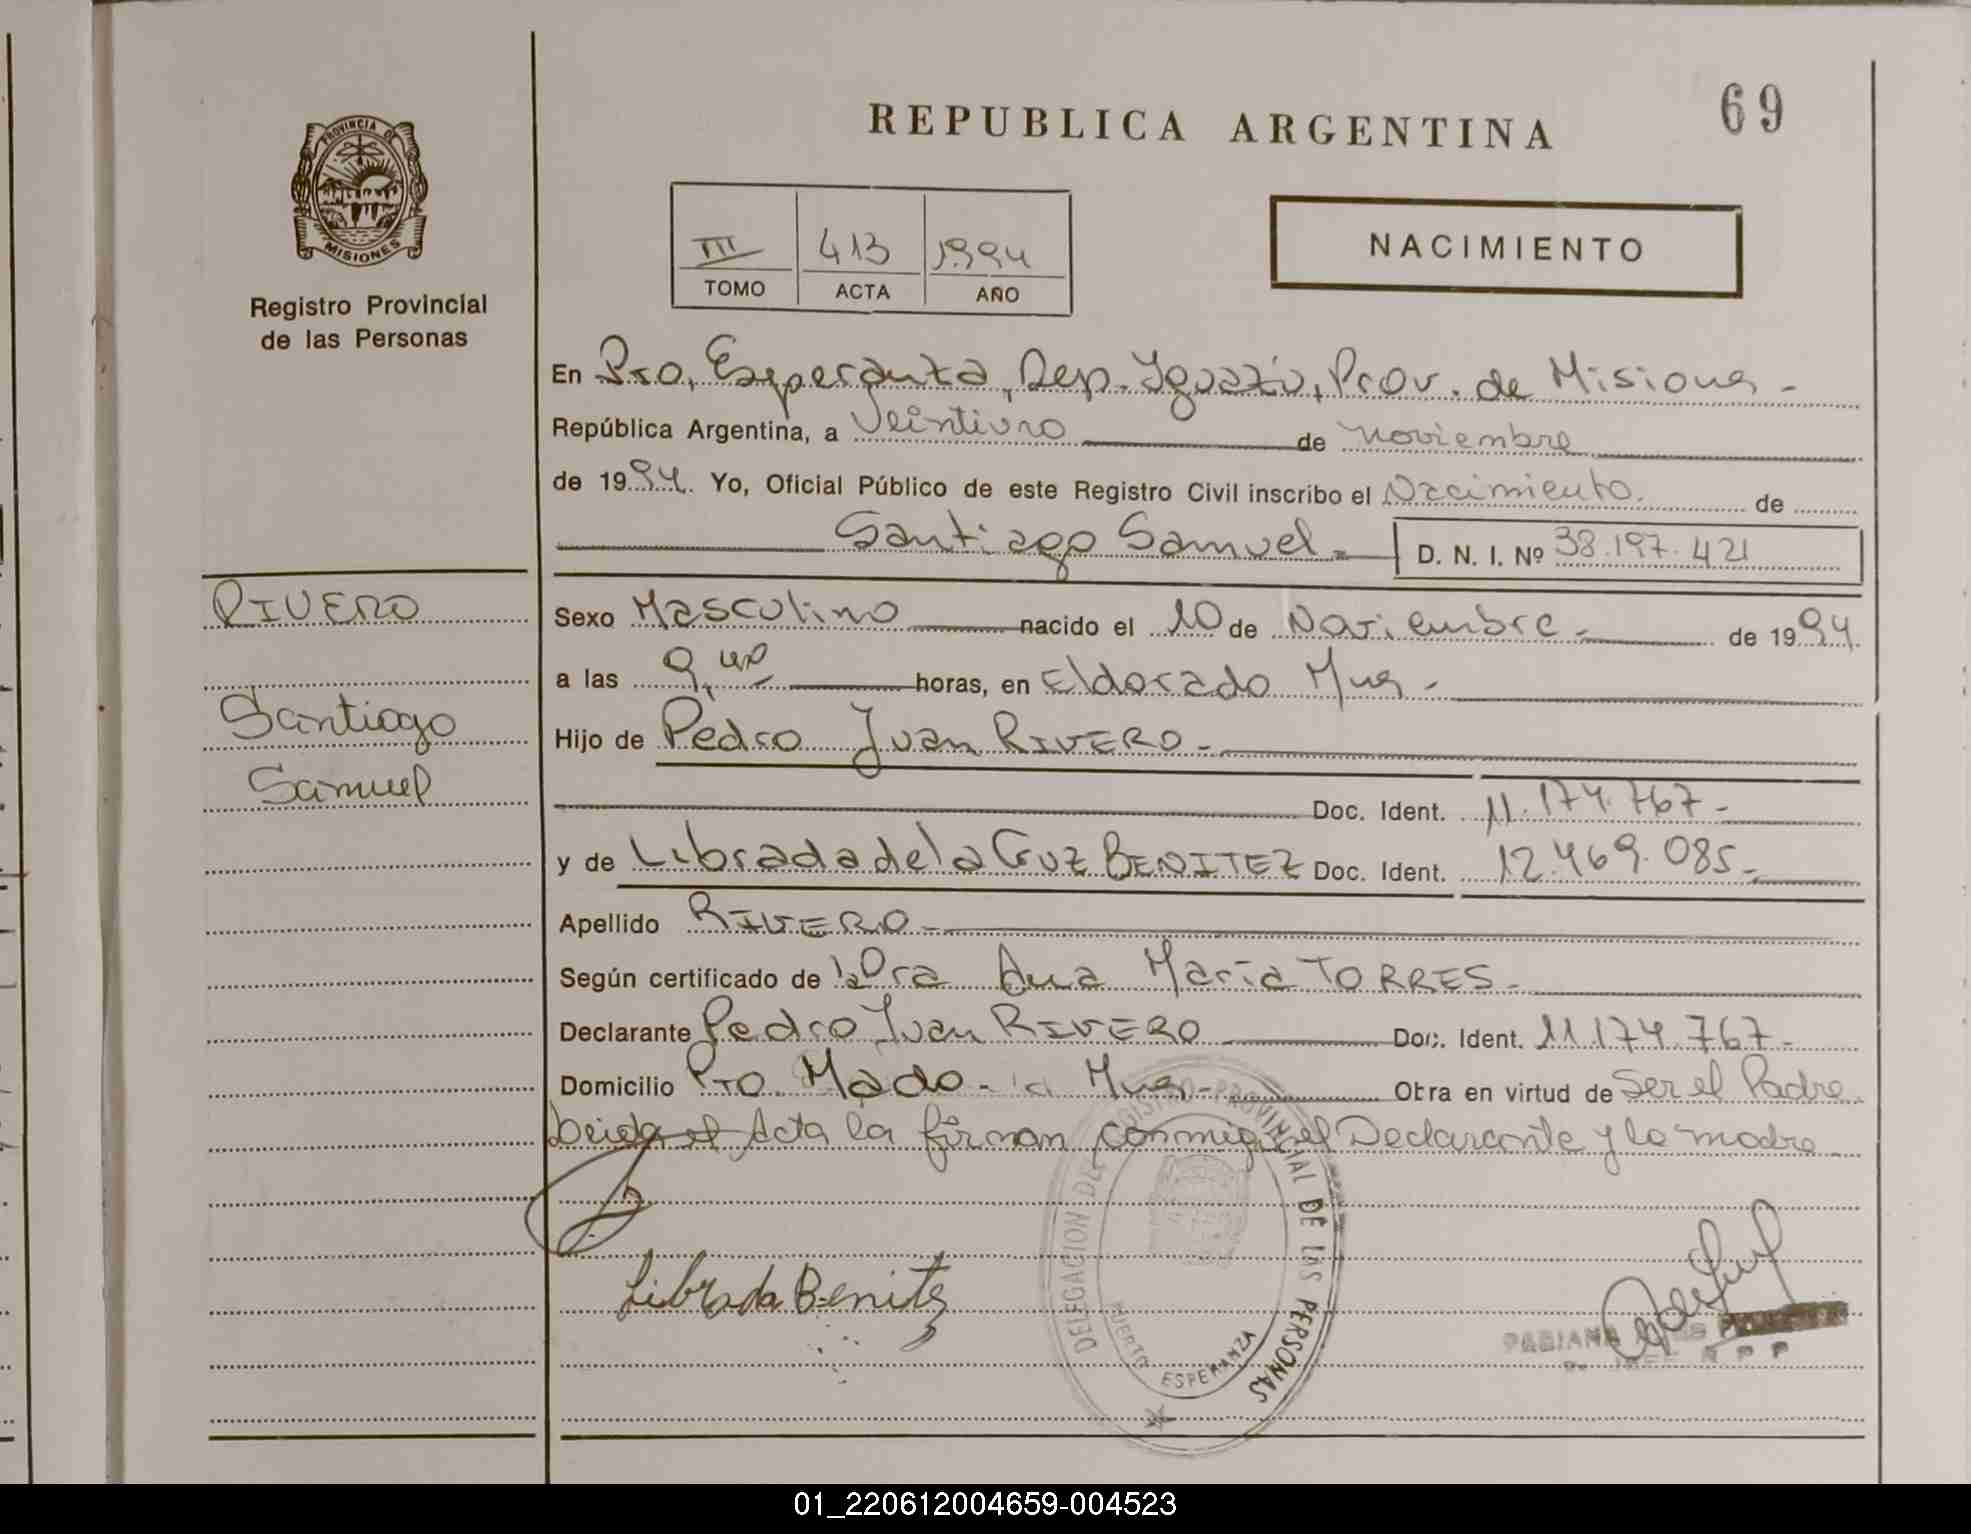 REPUBLICA ARGENTINA
69
PROVINCIA DE
MISIONES
Registro Provincial
de las Personas
III 413 1994
TOMO ACTA AÑO
NACIMIENTO
En Pto. Esperanza, Dep. Iguazú, Prov. de Misiones -
República Argentina, a Veintiuno de noviembre
de 1994. Yo, Oficial Público de este Registro Civil inscribo el Nacimiento. de
Santiago Samuel - D. N. I. Nº 38.197.421
RIVERO
Santiago
Samuel
Sexo Masculino nacido el 10 de Noviembre - de 1994.
a las 9, horas, en Eldorado Mnes -
Hijo de Pedro Juan RIVERO -
Doc. Ident. 11.174.767 -
y de Librada de la Cruz BENITEZ Doc. Ident. 12.469.085 -
Apellido RIVERO -
Según certificado de la Dra Ana María TORRES -
Declarante Pedro Juan RIVERO Doc. Ident. 11.174.767 -
Domicilio Pto. Mado - Mnes - Obra en virtud de Ser el Padre
Leida el Acta la firman conmigo el Declarante y la madre
Librada Benitez
DELEGACION DEL REGISTRO PROVINCIAL DE LAS PERSONAS
PUERTO ESPERANZA
R P P
01_220612004659-004523